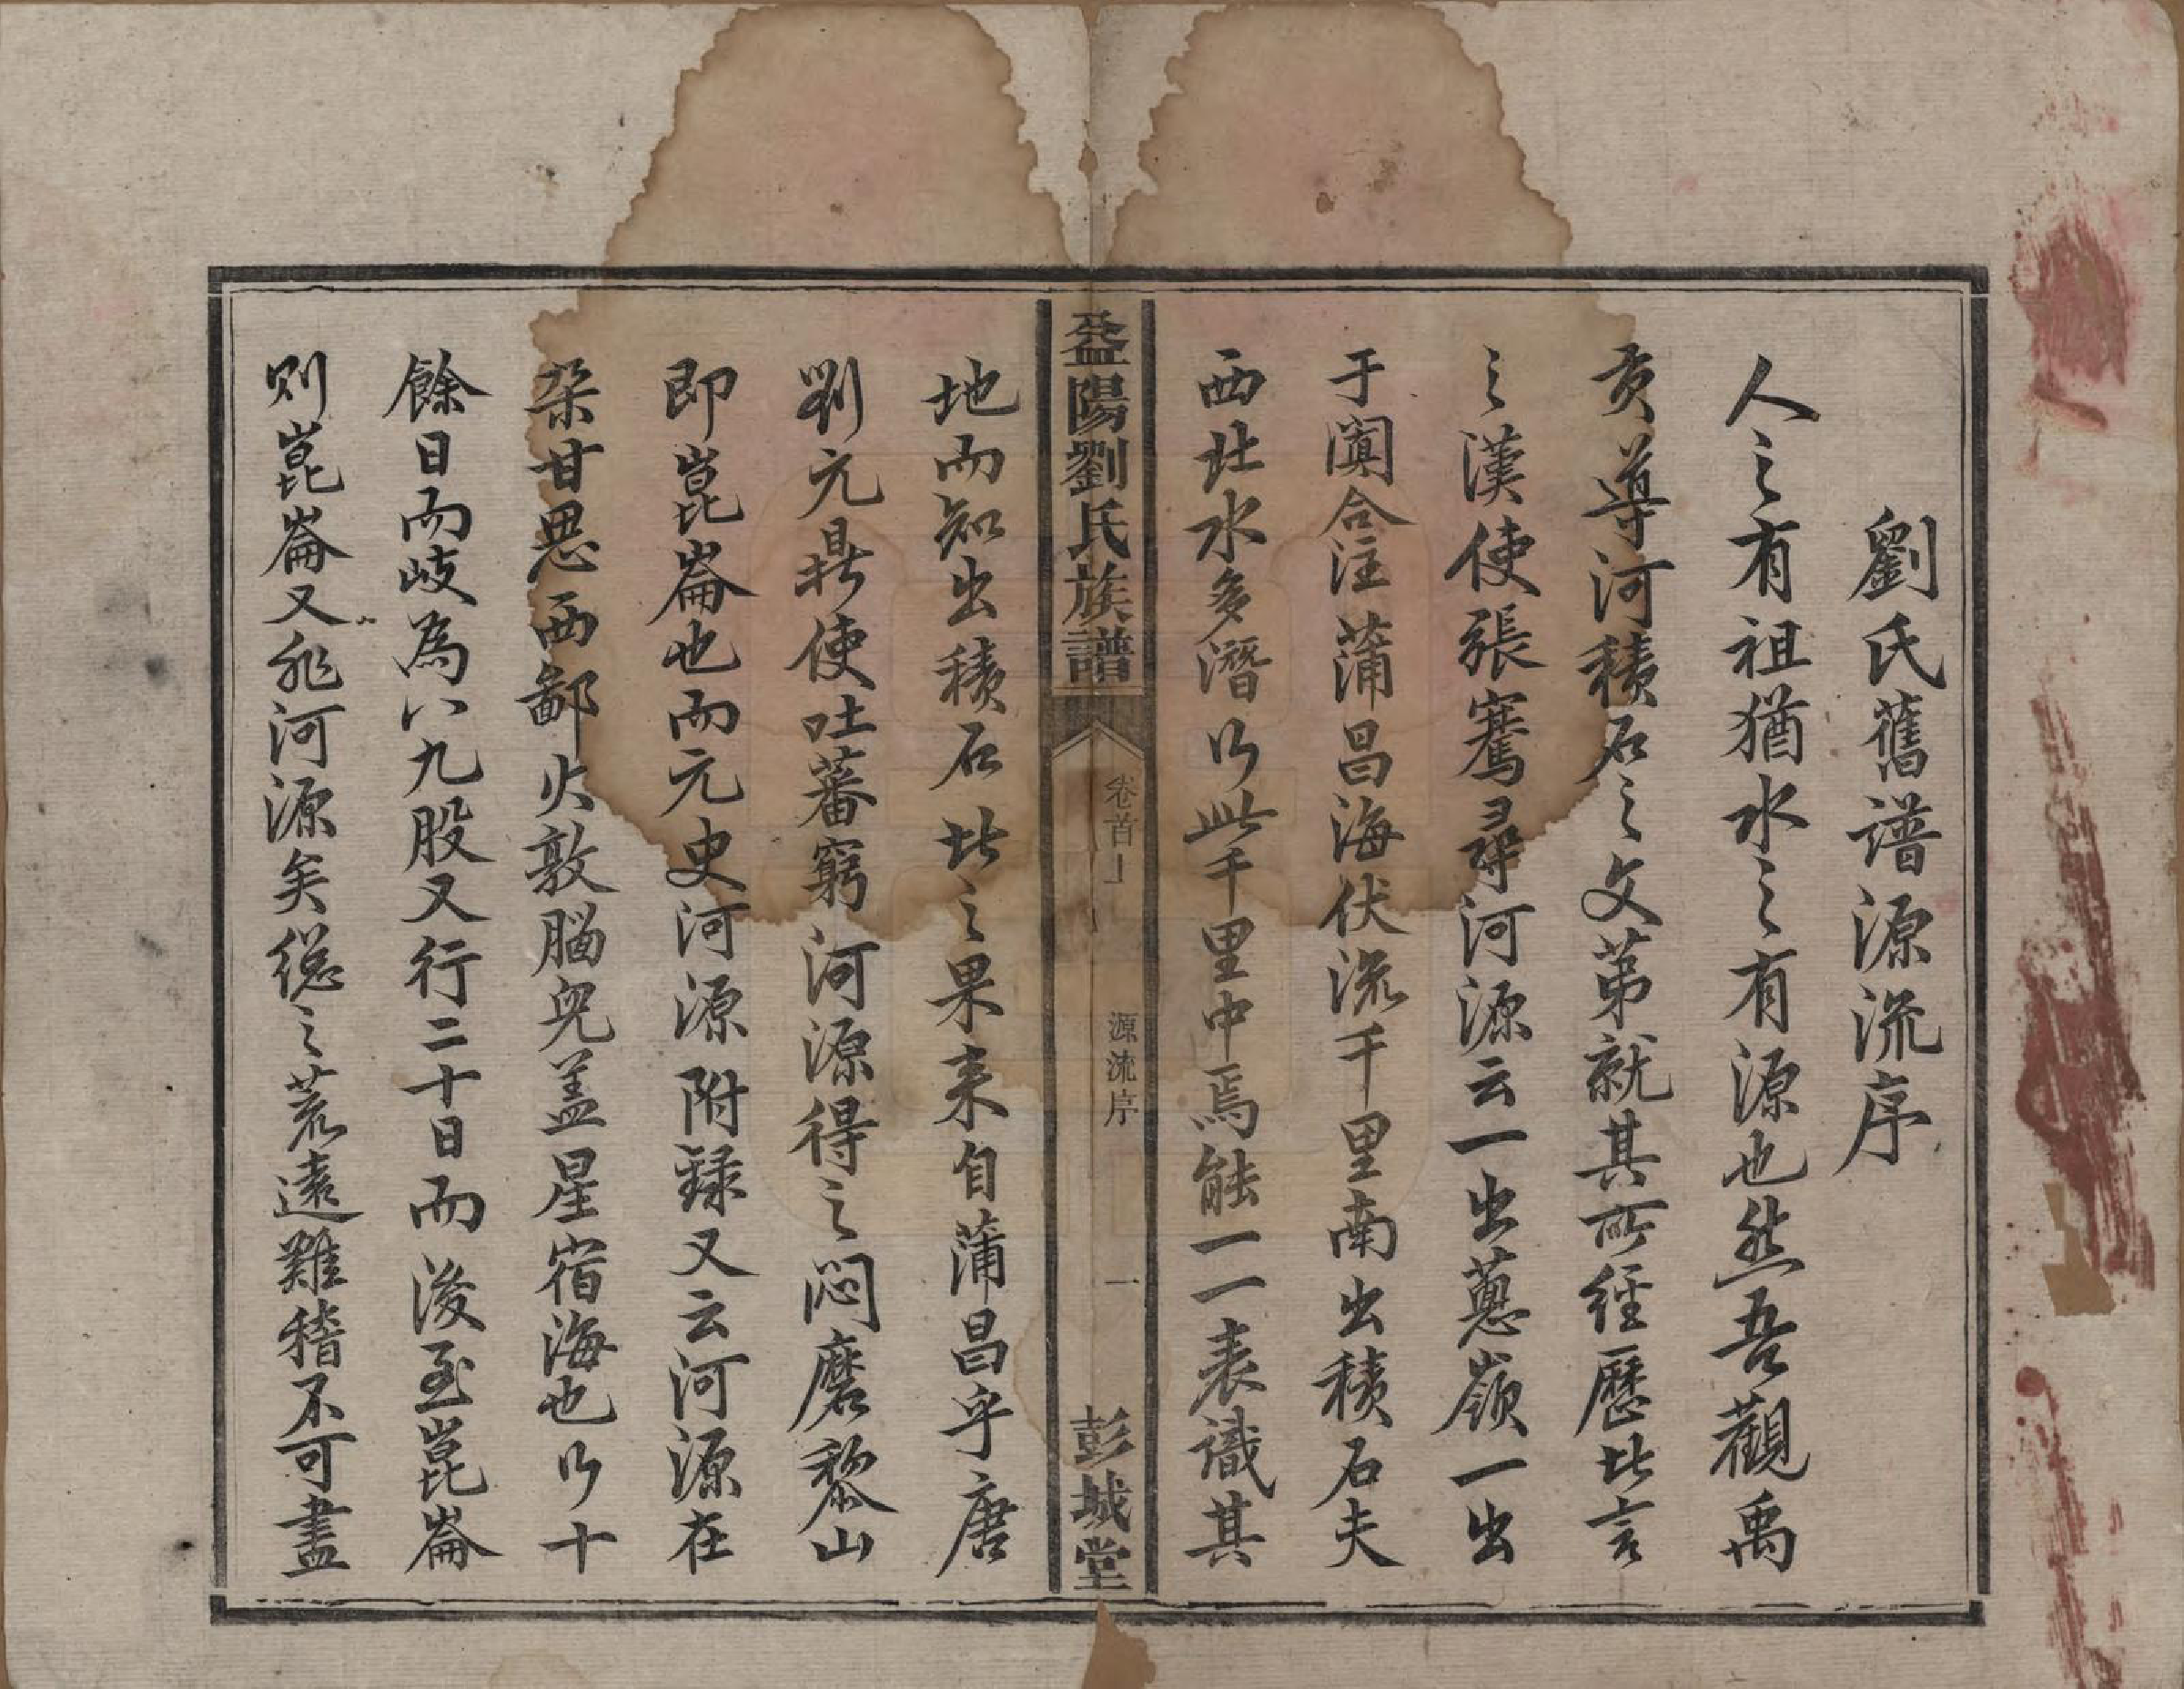 劉氏舊谱源流序
人之有祖猶水之有源也然吾觀禹
貢導河積石之文第就其所經歷比言
之漢使張騫尋河源云一出蔥嶺一出
于闐合注蒲昌海伏流千里南出積石夫
西北水多潛以此千里中焉能一一表識其
益陽劉氏族譜
卷首上
源流序
一
彭城堂
地而知出積石北之果来自蒲昌乎唐
劉元鼎使吐蕃窮河源得之悶磨黎山
即崑崙也而元史河源附録又云河源在
朶甘思西鄙火敦腦兒盖星宿海也以十
餘日而岐為八九股又行二十日而後至崑崙
则崑崙又非河源矣緫之荒遠難稽不可盡